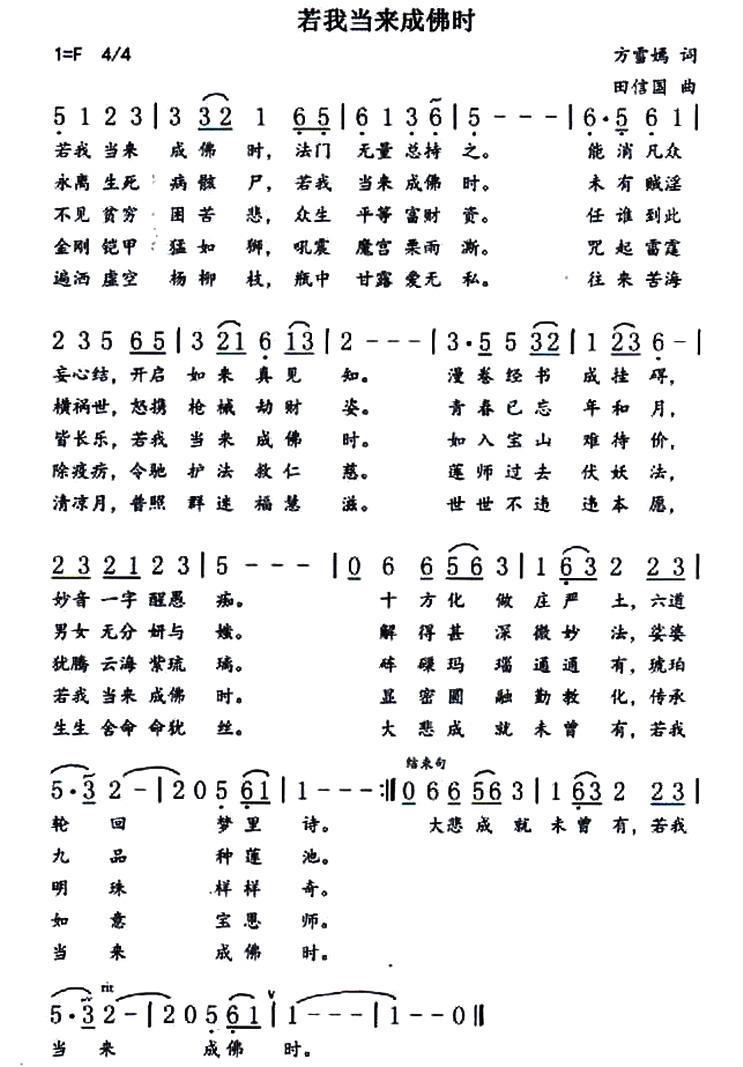 若我当来成佛时
1=F 4/4 方雪嫣 词
田信国 曲
5 1 2 3 | 3 32 1 65 | 6 1 3 6 | 5 - - - | 6· 5 6 1 |
若我 当来 成佛 时，法门 无量 总持 之。 能消凡众
永离 生死 病骸 尸，若我 当来成佛 时。 未有贼淫
不见 贫穷 困苦 悲，众生 平等 富财 资。 任谁到此
金刚 铠甲 猛如 狮，吼震 魔宫 栗雨 澌。 咒起雷霆
遍洒 虚空 杨柳 枝，瓶中 甘露 爱无 私。 往来苦海
2 3 5 65 | 3 21 6 13 | 2 - - - | 3· 5 5 32 | 1 23 6 - |
妄心结，开启 如来真见 知。 漫卷经书 成挂碍，
横祸世，怒携 枪械劫财 姿。 青春已忘 年和月，
皆长乐，若我 当来成佛 时。 如入宝山 难待价，
除疫疠，令驰 护法救仁 慈。 莲师过去 伏妖法，
清凉月，普照 群迷福慧 滋。 世世不违 违本愿，
23 21 2 3 | 5 - - - | 0 6 6 56 3 | 1 63 2 23 |
妙音 一字 醒愚 痴。 十方化 做庄严 土，六道
男女 无分 妍与 媸。 解得甚 深微妙 法，娑婆
犹腾 云海 紫琉 璃。 砗磲玛 瑙通通 有，琥珀
若我 当来 成佛 时。 显密圆 融勤教 化，传承
生生 舍命 命犹 丝。 大悲成 就未曾 有，若我
5· 3 2 - | 2 0 5 61 | 1 - - - :‖ 结束句 0 6 6 56 3 | 1 63 2 23 |
轮 回 梦里 诗。 大悲成 就 未曾 有，若我
九 品 种莲 池。
明 珠 样样 奇。
如 意 宝恩 师。
当 来 成佛 时。
rit V
5· 3 2 - | 2 0 5 61 | 1 - - - | 1 - - 0 ‖
当 来 成佛 时。